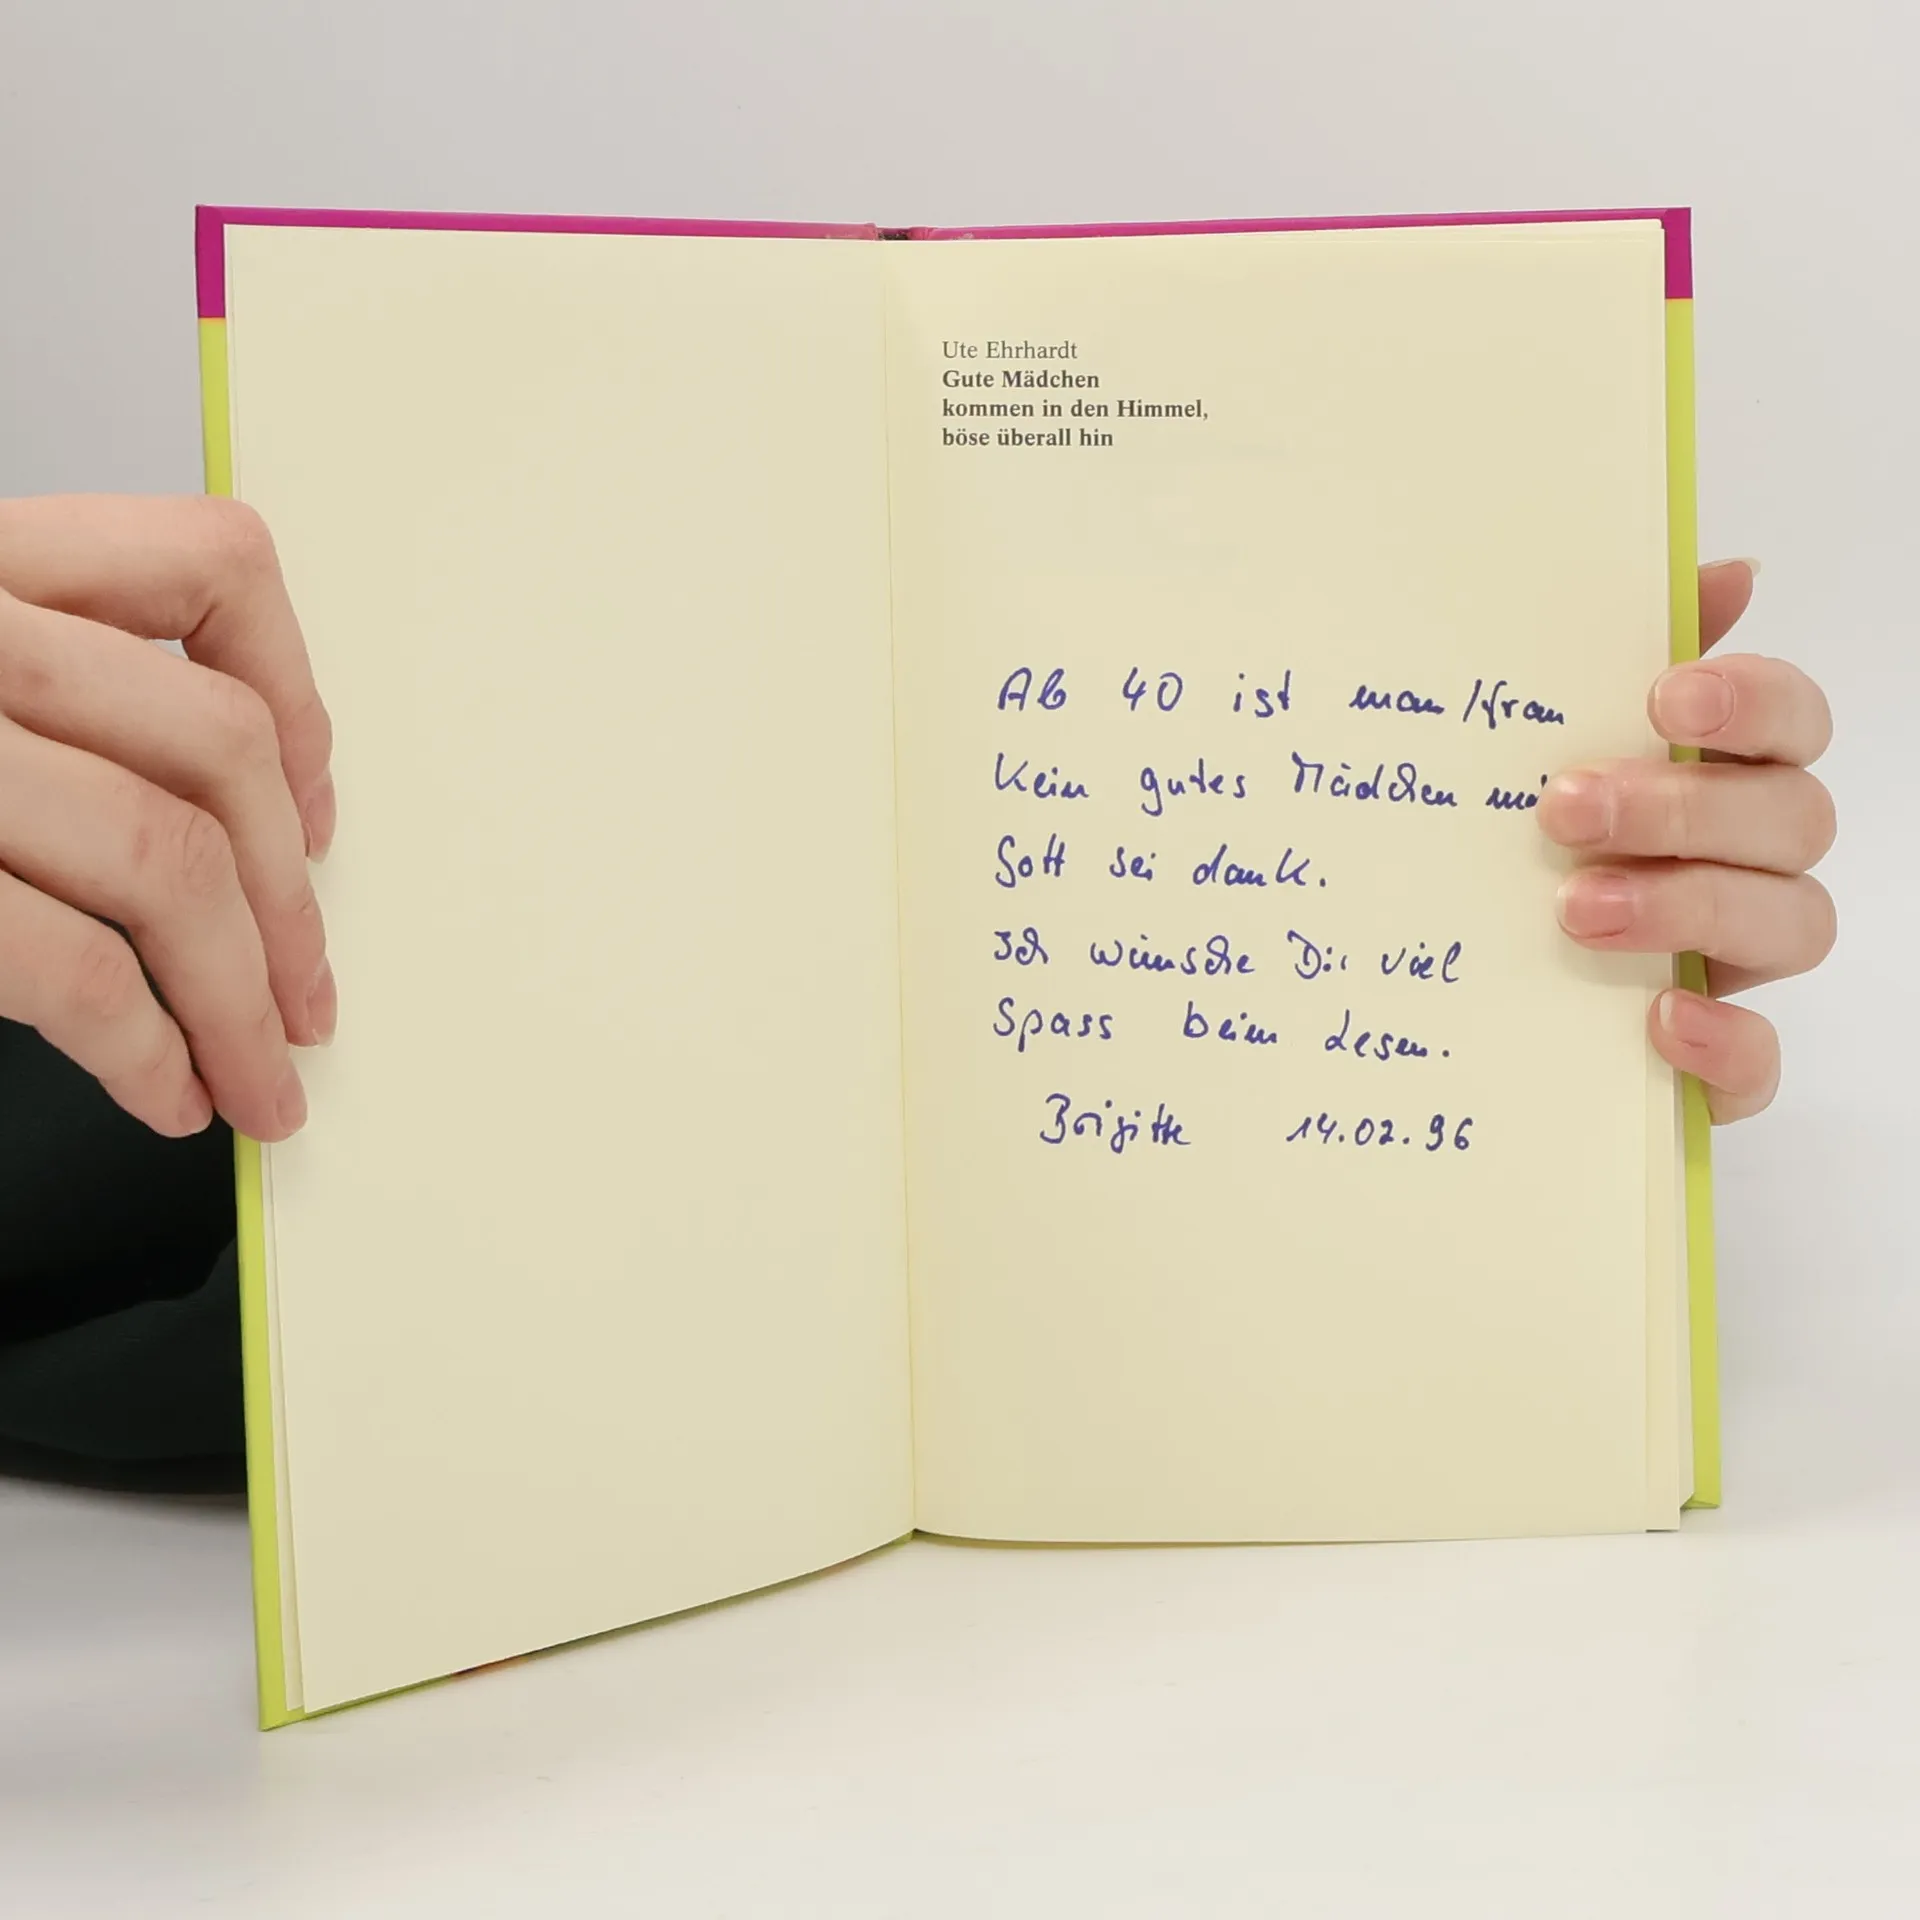 Ute Ehrhardt
Gute Mädchen
kommen in den Himmel,
böse überall hin
Ab 40 ist man/frau
Kein gutes Mädchen
Gott sei dank.
Ich wünsche Dir viel
Spass beim Lesen.
Brigitte 14.02.96